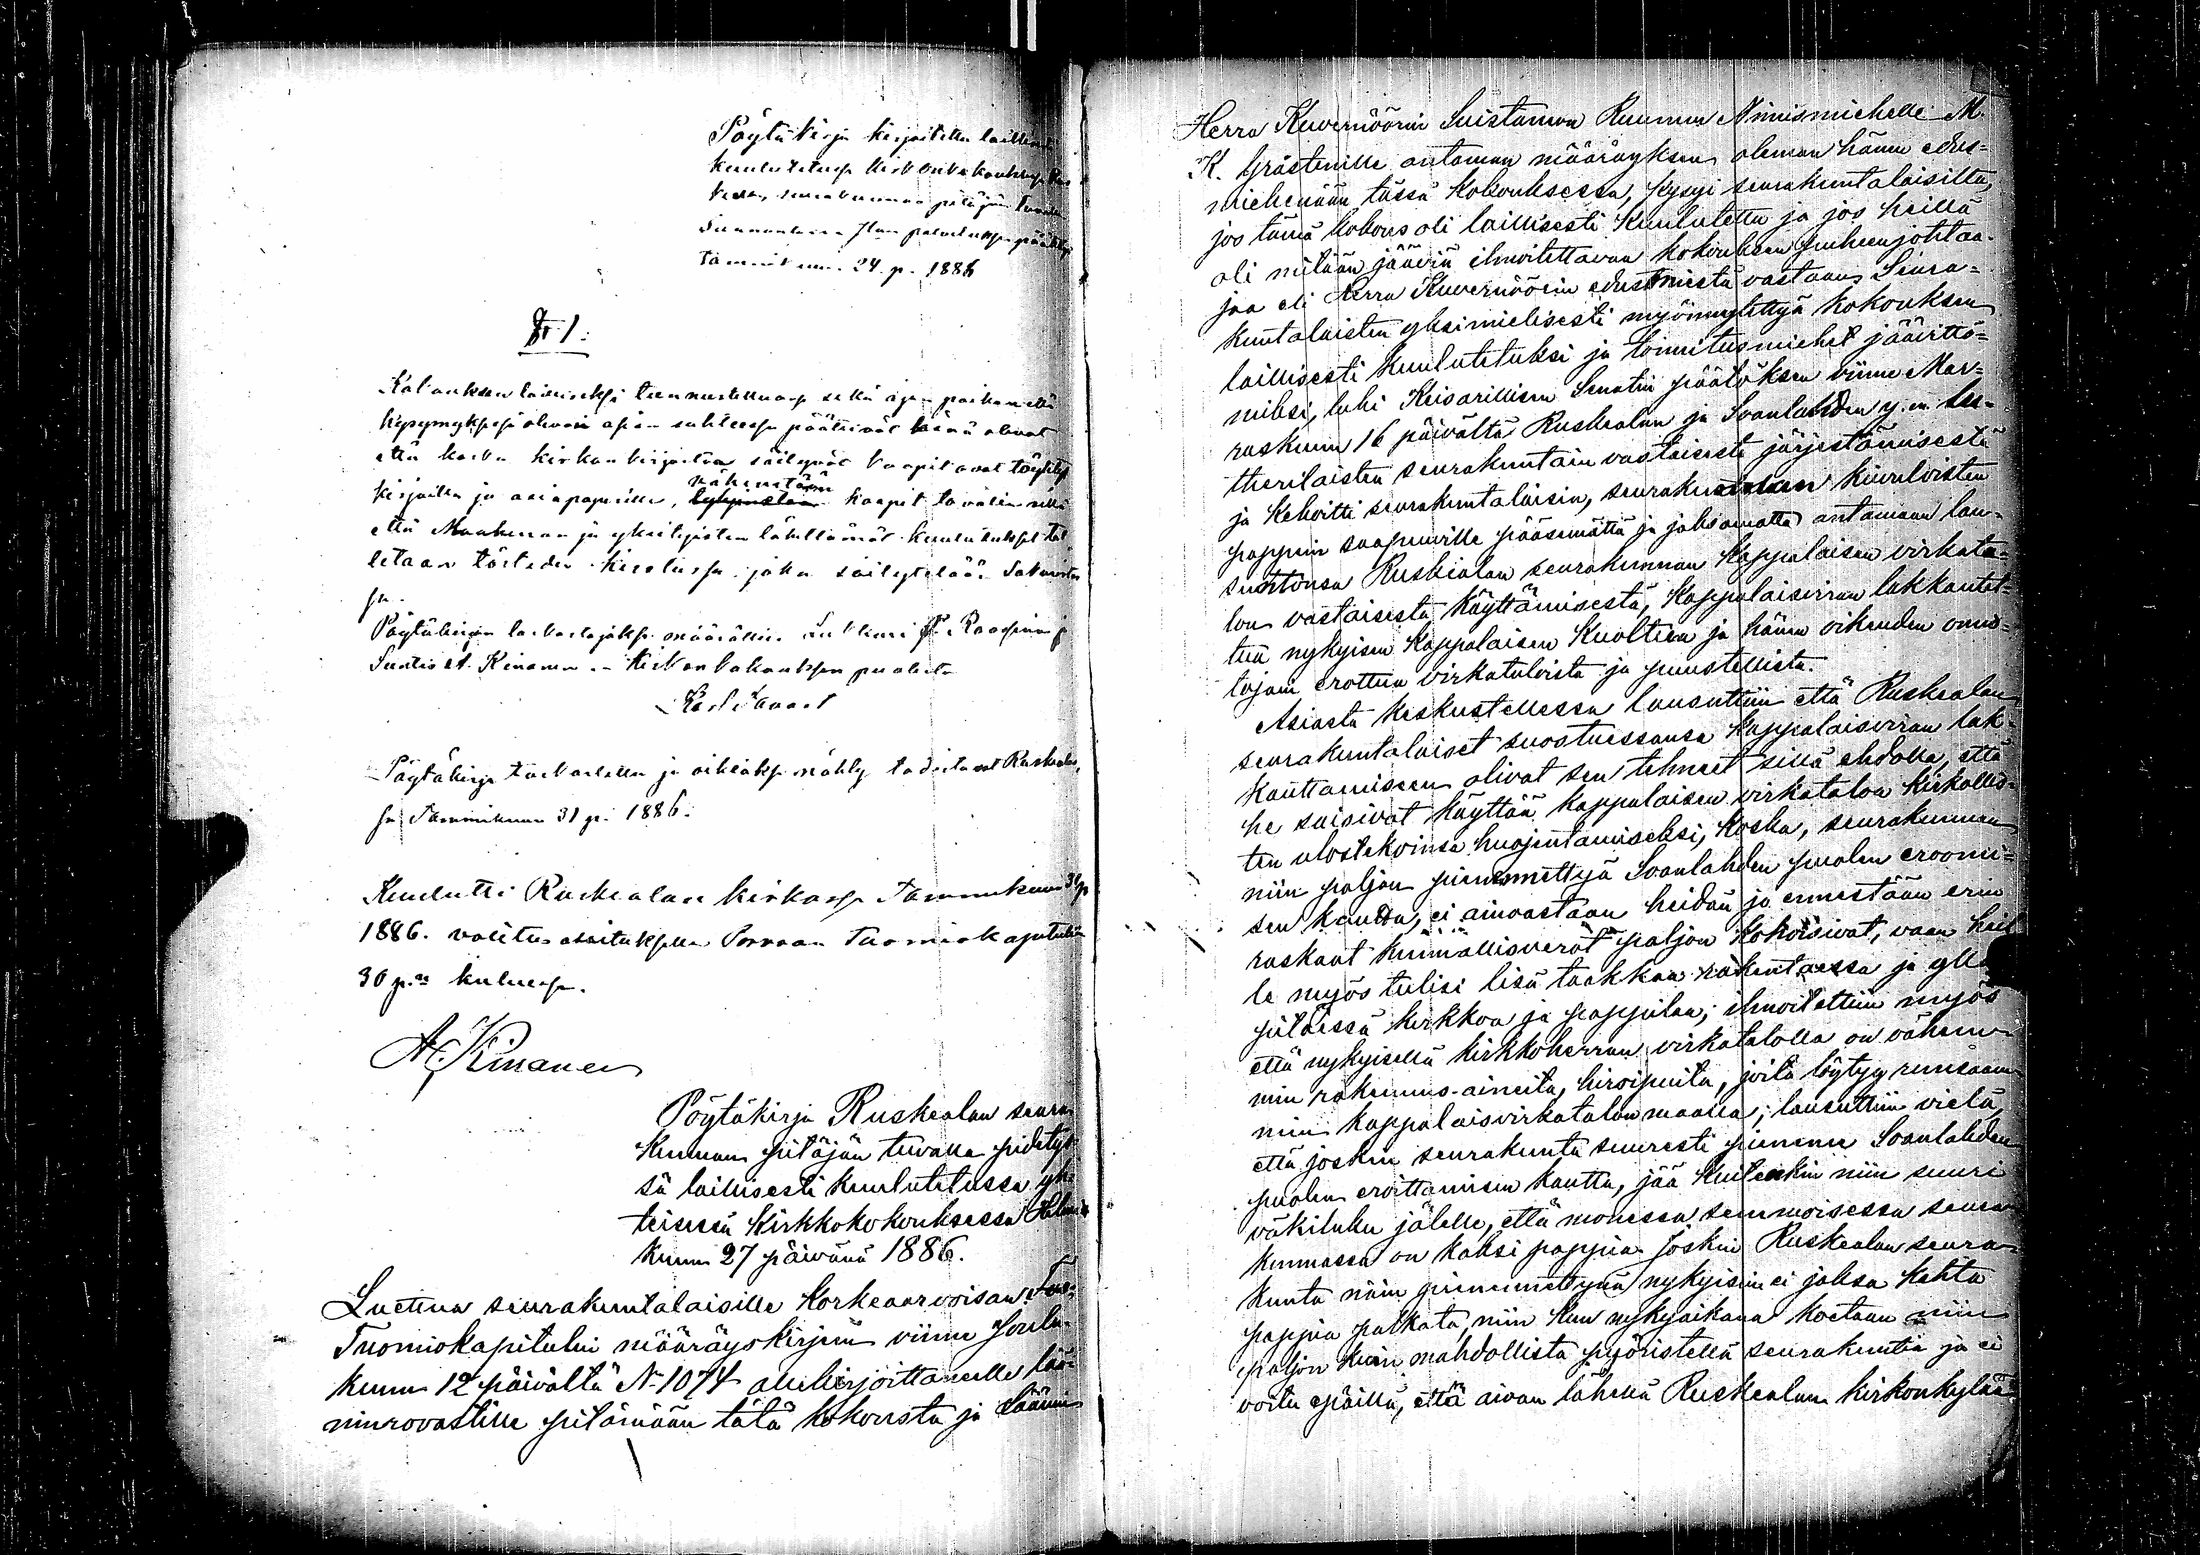 Pöytäkirja kirjoitettu laillisesti
kuulutetussa Kirkonkokouksessa Rus
kealan seurakunnan pitäjän tuvalla
Sunnuntaina Jumalan palveluksen päätettyä
Tammikuun 24 p. 1886
§ 1:
Kokouksen lailliseksi tunnustettua sekä ajan paikan että
kysymyksessä olevan asian suhteessa päättivät läsnä olevat
että koska kirkon kirjastoa säilyvät kaapit ovat täytetyt
nähenstään
kirjoilla ja asiapapereilla, kaapit
että Maaherran ja yksityisten lähettämät kuulutukset tal
letaan tästedes kirstussa, joka säilytetään Sakaristos
sa.
Pöytäkirjan tarkastajaksi määrättiin Lukkari P. Raasina ja
Suntio A. Kinanen. Kirkonkokouksen puolesta
Pöytäkirja tarkastettu ja oikeaksi nähty todistavat Ruskealas
sa Tammikuun 31 p. 1886.
Kuulutti Ruskealan kirkossa Tammikuun 31 p
1886. valitus osoituksella Porvoon Tuomiokapituliin
30 p:n kuluessa.
A. Kinanen
Pöytäkirja Ruskealan seura
kunnan pitäjän tuvalla pidetys
sä laillisesti kuulutetussa yh
teisessä Kirkkokokouksessa Helmi
kuun 27 päivänä 1886.
Luettua seurakuntalaisille Korkeaarvoisan
Tuomiokapitulin määräyskirjan viime Joulu-
kuun 12 päivältä N 1074 allekirjoittaneelle lää-
ninrovastille pitämään tätä kokousta ja Läänin
Herra Kuvernöörin Suistamon Ruunun Nimismiehelle M.
K. Gråstenille antaman määräyksen oleman hänen edus-
miehenään tässä kokouksessa, kysyi seurakuntalaisilta,
jos tämä kokous oli laillisesti Kuulutettu ja jos heillä
oli mitään jääviä ilmoitettavan kokouksen puheenjohtaa-
jaa eli Herra Kuvernöörin edusmiestä vastaan, Seura-
kuntalaisten yksimielisesti myönnytettyä kokouksen
laillisesti kuulutetuksi ja toimitusmiehet jäävittö-
miksi, luki Keisarillisen Senatin päätöksen viime Mar-
raskuun 16 päivältä Ruskealan ja Soanlahden y.m. Lu-
therilaisten seurakuntain vastaisesta järjestämisestä
ja kehoitti seurakuntalaisia, seurakunnan kuuloisten
pappein saapuville pääsemättä ja jaksamatta antamaan lau-
suntonsa Ruskealan seurakunnan Kappalaisen virkata-
lon vastaisesta Käyttämisestä, Kappalaisviran lakkautet-
tua nykyisen Kappalaisen Kuoltua ja hänen oikeuden omis-
tajain erottua virkatalosta ja puustellista.
Asiasta keskustellessa lausuttiin että Ruskealan
seurakuntalaiset suostuessansa kappalaisviran lak-
kauttamiseen olivat sen tehneet sillä ehdolla, että
he saisivat Käyttää Kappalaisen virkatalon Kirkollis-
ten ulostekoinsa huojentamiseksi, Koska, seurakunnan
niin paljon pienennettyä Soanlahden puolen eroomi-
sen kautta, ei ainoastaan heidän jo ennestään erin
raskaat kunnallisverot paljon kohoisivat, vaan heil
le myös tulisi lisä taakkaa rakentaessa ja yllä
pitäessä kirkkoa ja pappilaa; ilmoitettiin myös
että nykyisellä kirkkoherran virkatalolla on vähem-
min rakennus-aineita, hirsipuita, joita löytyy runsaam-
min kappalaisvirkatalon maalla; lausuttiin vielä
että joskin seurakunta suuresti pienenee Soanlahden
puolen eroittamisen kautta, jää kuitenkin niin suuri
väkiluku jälelle, että monessa semmoisessa seura
kunnassa on kaksi pappia. Joskin Ruskealan seura-
kunta näin pienennettynä nykyisin ei jaksa kahta
pappia palkata, niin kun nykyaikana koetaan niin
paljon kuin mahdollista pyöristellä seurakuntia ja ei
voitu epäillä, että aivan lähellä Ruskealan kirkonkylää